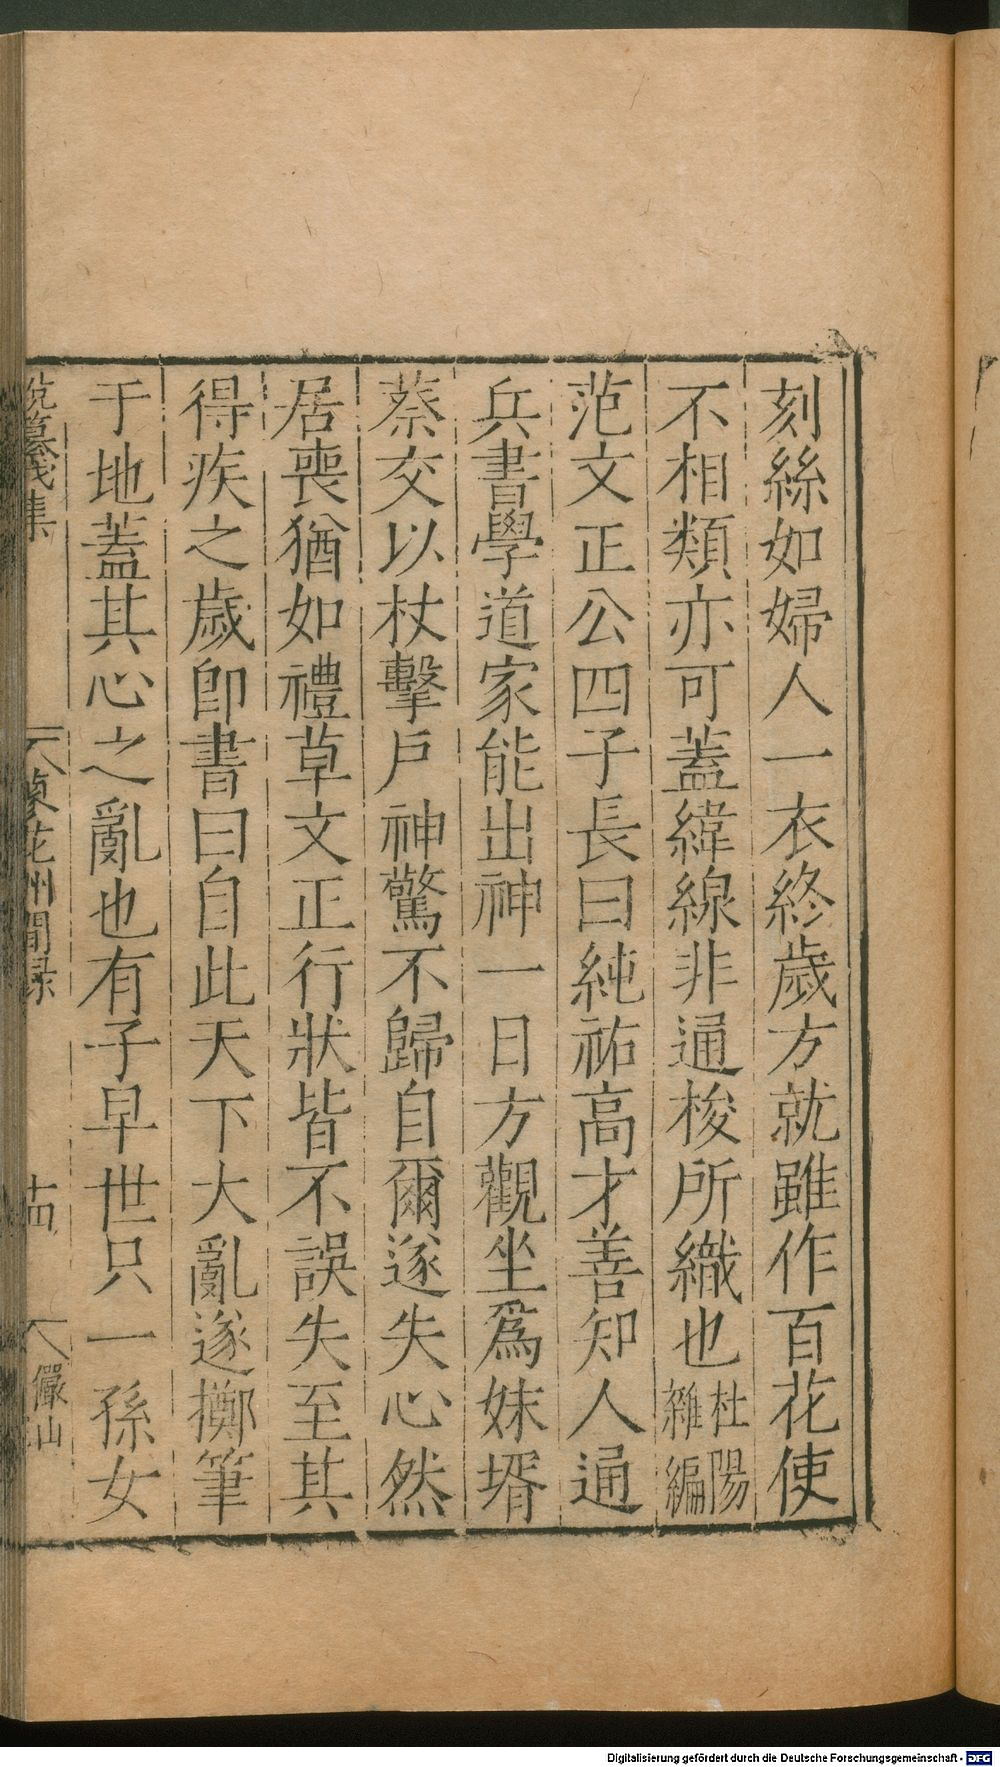 刻絲如婦人一衣終歲方就雖作百花使
不相類亦可蓋緯線非通梭所織也杜陽雜編
范文正公四子長曰純祐高才善知人通
兵書學道家能出神一日方觀坐爲妹壻
蔡交以杖擊戶神驚不歸自爾遂失心然
居喪猶如禮草文正行狀皆不誤失至其
得疾之歲即書曰自此天下大亂遂擲筆
于地蓋其心之亂也有子早世只一孫女
說纂戊集
蓼花州閒录
十四
儼山
Digitalisierung gefördert durch die Deutsche Forschungsgemeinschaft - DFG